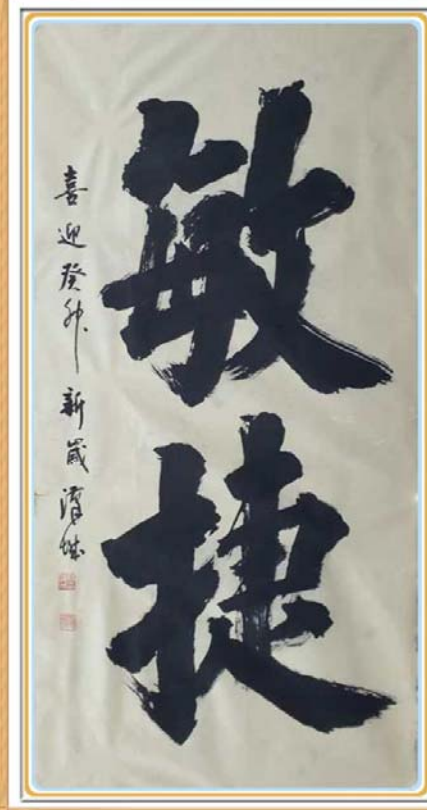 敏捷
喜迎癸卯新岁